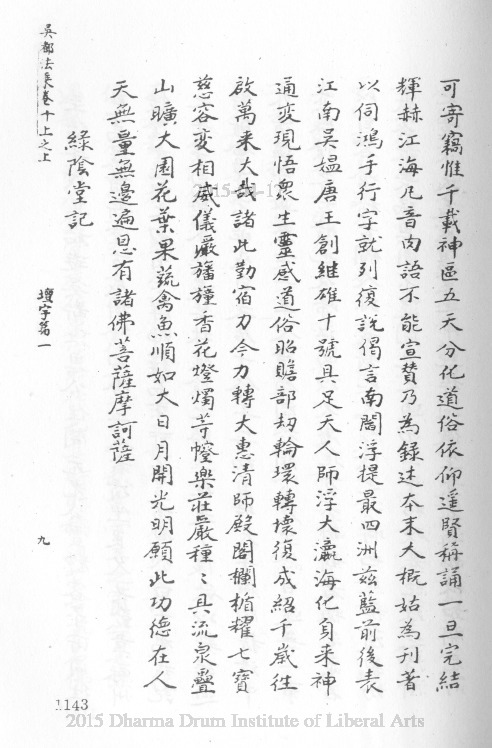 可寄竊惟千載神區五天分化道俗依仰遥賢稱誦一旦完結
輝赫江海凡音肉語不能宣賛乃為録述本末大概姑為刊著
以伺鴻手行字就列復説偈言南閻浮提最四洲兹藍前後表
江南吳媪唐王創維雄十號具足天人師浮大瀛海化身来神
通変現悟衆生靈感道俗昭贍部刧輪環轉壊復成紹千歲徃
啟萬来大哉諸此勤宿力今力轉大惠清師殿閣欄楯耀七寶
慈容変相威儀嚴旛幢香花燈燭苧幢樂莊嚴種〻具流泉疊
山曠大園花葉果蔬禽魚順如大日月開光明願此功德在人
天無量無邊遍恩有諸佛菩薩摩訶薩
緑陰堂記
吳都法乗卷十上之上
壇字第一
九
1143
2015 Dharma Drum Institute of Liberal Arts